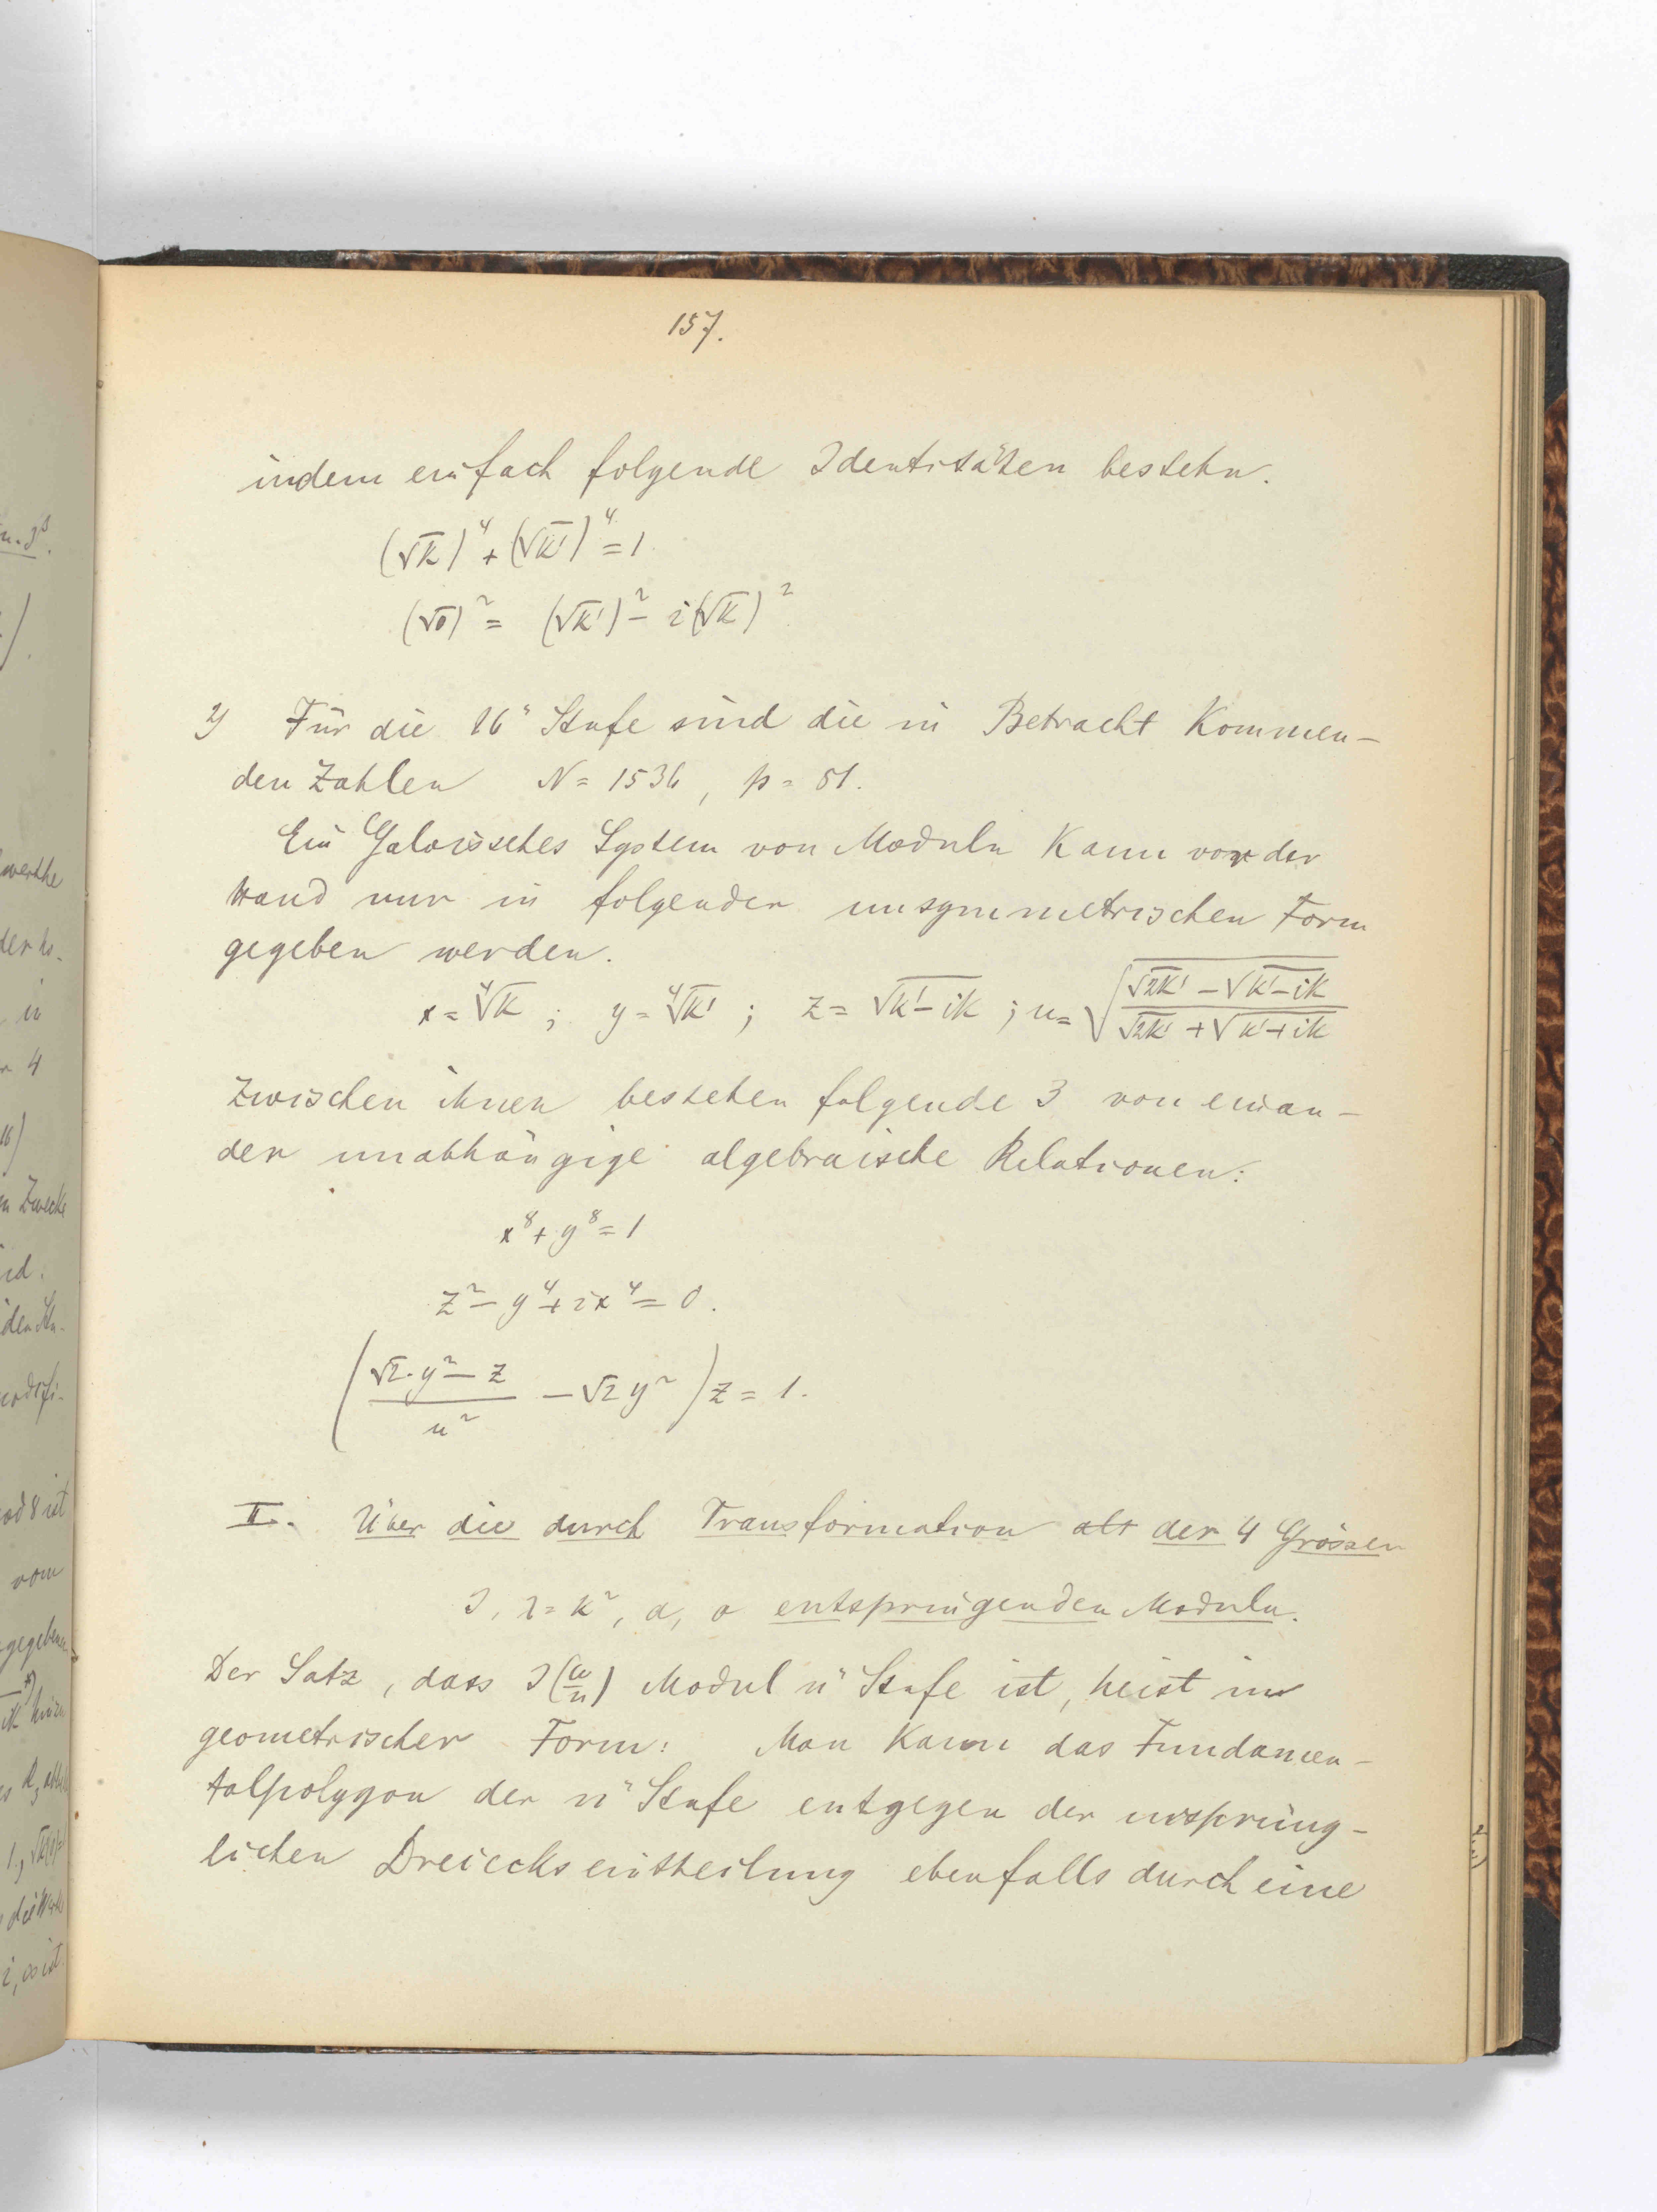 157.
indem einfach folgende Identitäten bestehn.
(√k)⁴ + (√k')⁴ = 1
(√σ)² = (√k')² - i(√k)²
2) Für die 16ᵗ Stufe sind die in Betracht kommen-
den Zahlen N = 1536, p = 81.
Ein Galoissches System von Moduln kann vor der
Hand nur in folgender unsymmetrischen Form
gegeben werden.
x = ∜k ; y = ∜k' ; z = √(k'-ik) ; u = √((√2k' - √(k'-ik))/(√2k' + √(k'+ik)))
Zwischen ihnen bestehen folgende 3 von einan-
der unabhängige algebraische Relationen:
x⁸ + y⁸ = 1
z² - y⁴ + ix⁴ = 0.
((√2·y² - z)/u² - √2 y²) z = 1.
II. Über die durch Transformation der 4 Grössen
J, λ = k², α, σ entspringenden Moduln.
Der Satz, dass J(ω/n) Modul nᵗ Stufe ist, heist in
geometrischer Form: Man kann das Fundamen-
talpolygon der nᵗ Stufe entgegen der ursprüng-
lichen Dreieckseintheilung ebenfalls durch eine